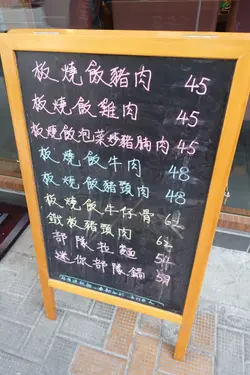 板燒飯豬肉 45
板燒飯雞肉 45
板燒飯泡菜炒豬腩肉 45
板燒飯牛肉 48
板燒飯豬頸肉 48
板燒飯牛仔骨 62
鐵板豬頸肉 62
部隊拉麵 54
迷你部隊鍋 59